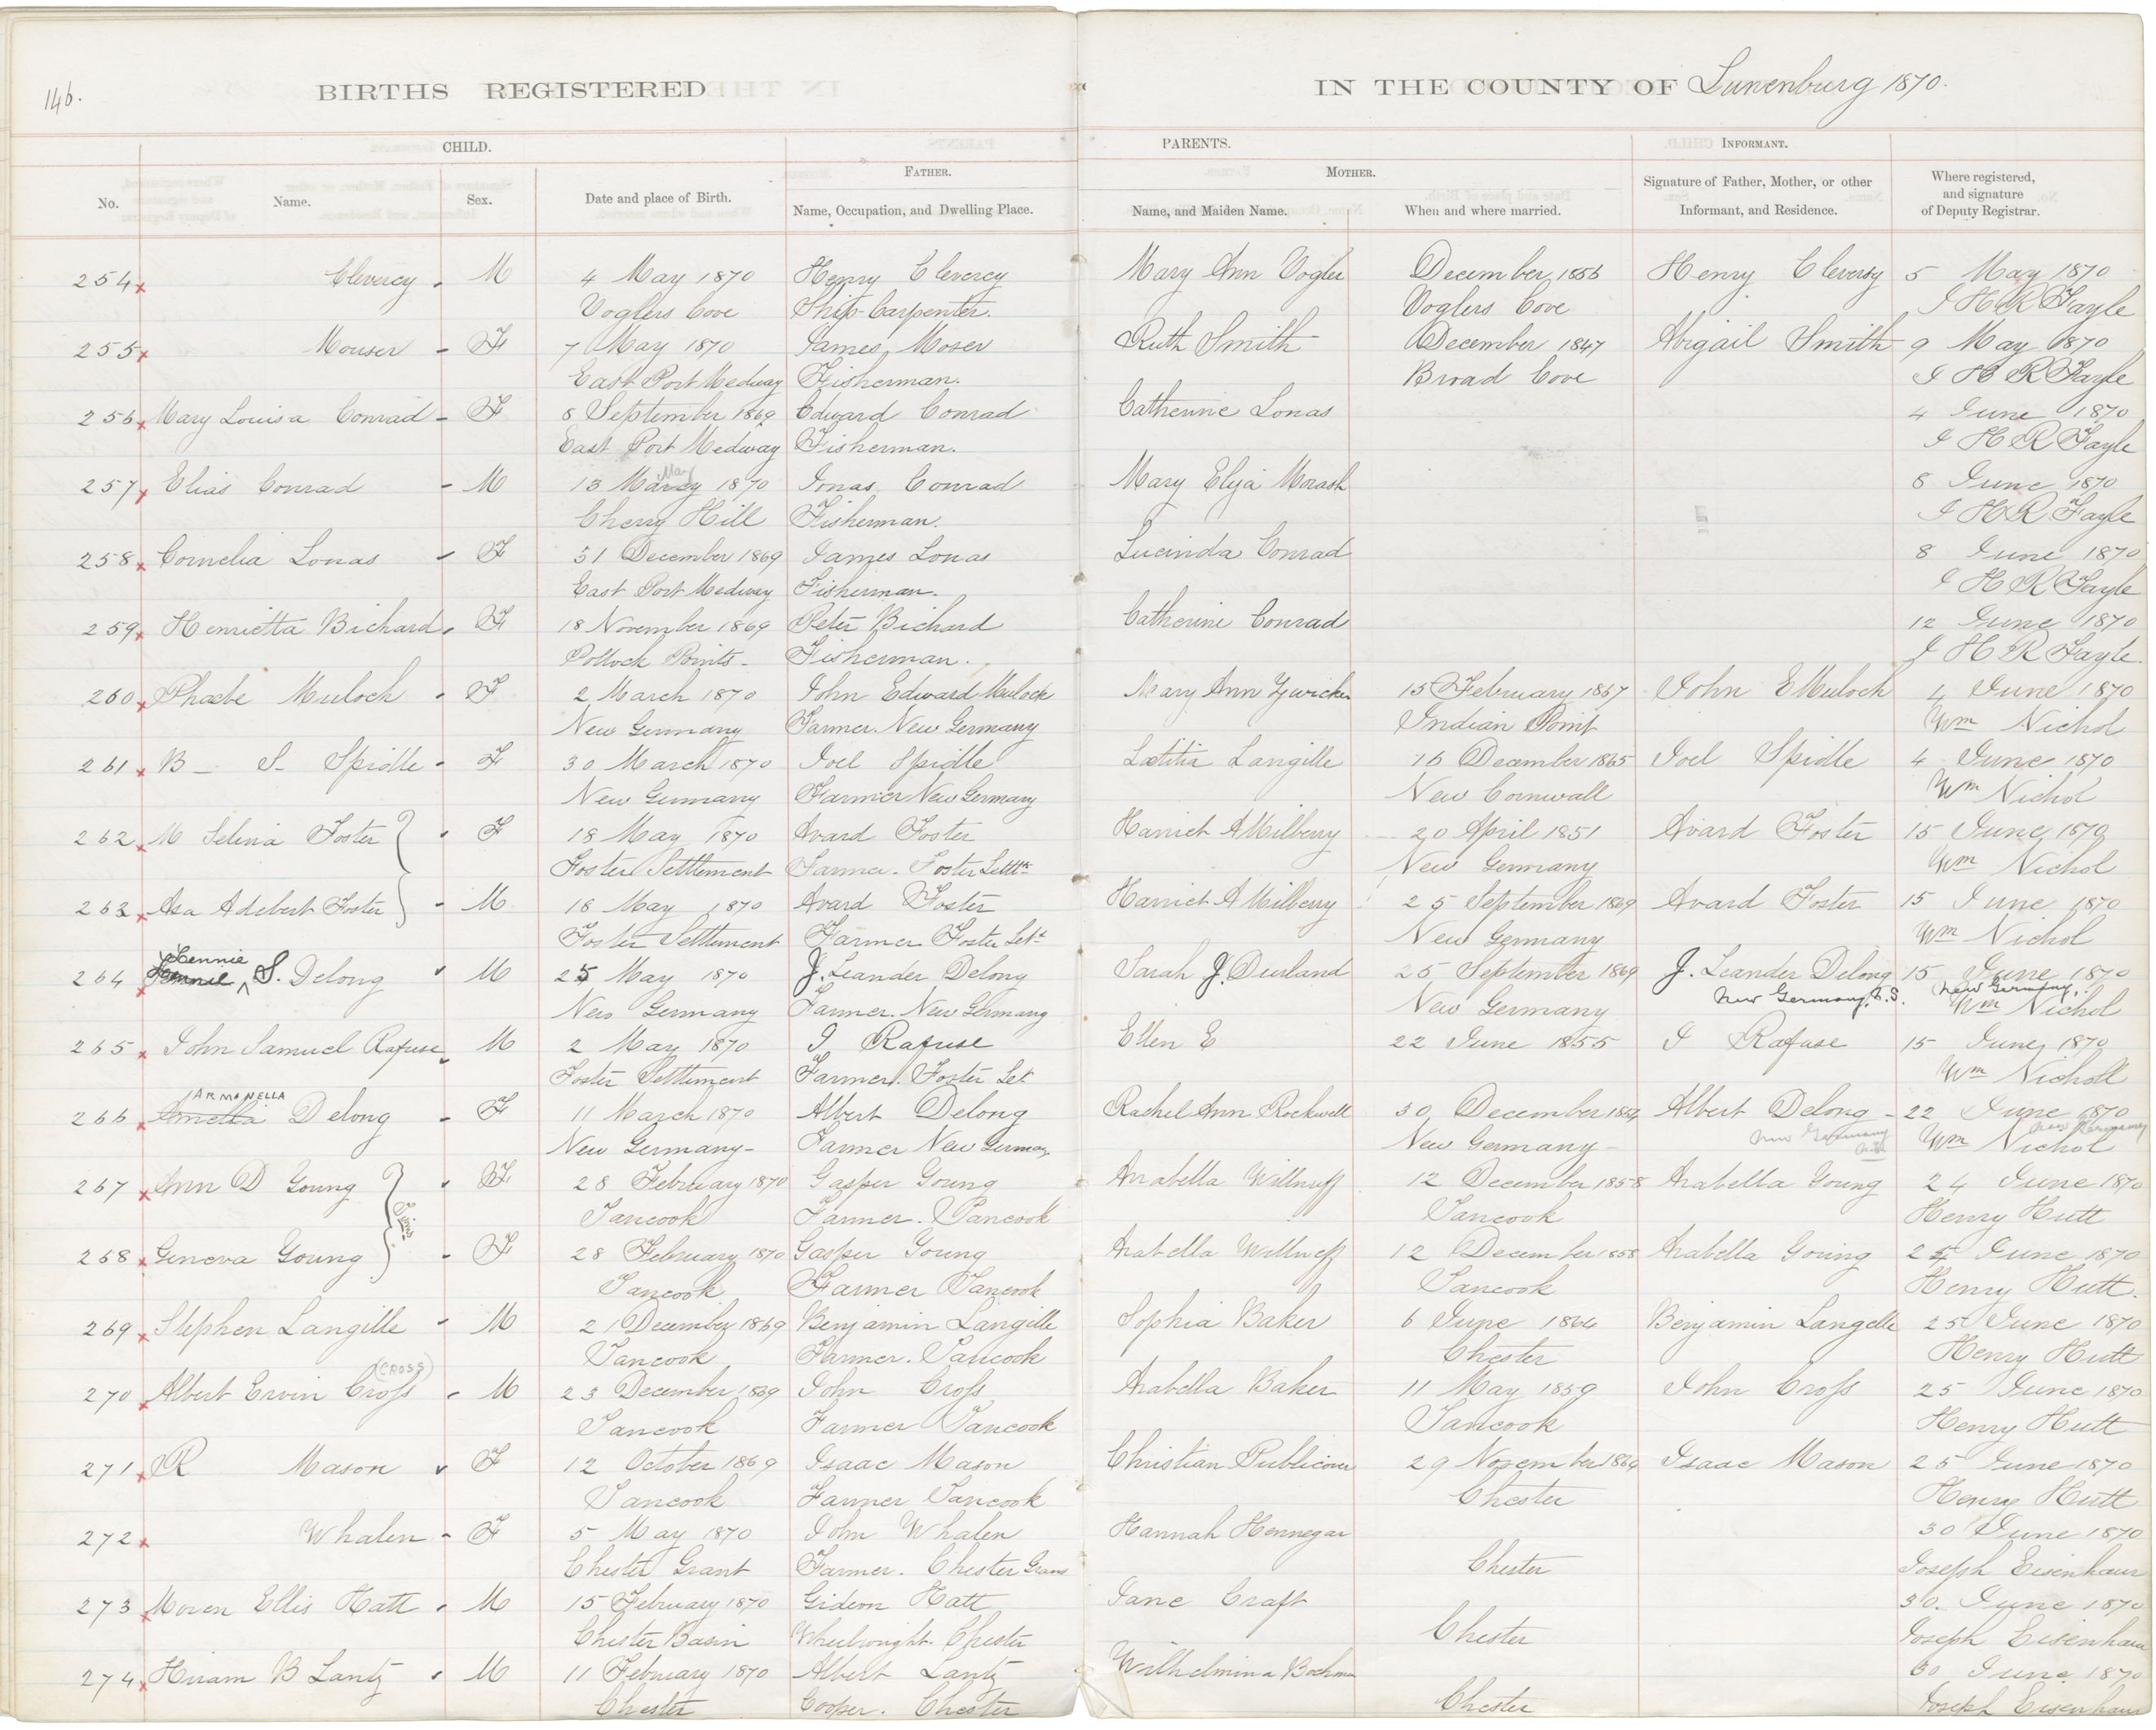 146.
BIRTHS REGISTERED IN THE COUNTY OF Lunenburg 1870.
CHILD. PARENTS. INFORMANT.
FATHER. MOTHER.
No. Name. Sex. Date and place of Birth. Name, Occupation, and Dwelling Place. Name, and Maiden Name. When and where married. Signature of Father, Mother, or other Informant, and Residence. Where registered, and signature of Deputy Registrar.
254 Clevercy M 4 May 1870 Henry Clevercy Mary Ann Vogler December 1856 Henry Cleversy 5 May 1870
Voglers Cove Ship-Carpenter. Voglers Cove I H R Fayle
255 Mouser - F 7 May 1870 James Moser Ruth Smith December 1847 Abigail Smith 9 May 1870
East Port Medway Fisherman. Broad Cove I H R Fayle
256 Mary Louisa Conrad - F 8 September 1869 Edward Conrad Catherine Lonas 4 June 1870
East Port Medway Fisherman. I H R Fayle
257 Elias Conrad - M 13 May 1870 Jonas Conrad Mary Eliza Morash 8 June 1870
Cherry Hill Fisherman. I H R Fayle
258 Cornelia Lonas - F 31 December 1869 James Lonas Lucinda Conrad 8 June 1870
East Port Medway Fisherman. I H R Fayle
259 Henrietta Bichard F 18 November 1869 Peter Bichard Catherine Conrad 12 June 1870
Pollock Points - Fisherman. I H R Fayle
260 Phoebe Mulock - F 2 March 1870 John Edward Mulock Mary Ann Zwicker 15 February 1867 John E Mulock 4 June 1870
New Germany Farmer. New Germany Indian Point Wm Nichol
261 B - S - Spidle - F 30 March 1870 Joel Spidle Lætitia Langille 16 December 1865 Joel Spidle 4 June 1870
New Germany Farmer New Germany New Cornwall Wm Nichol
262 M Selina Foster - F 18 May 1870 Avard Foster Harriet A Milberry 20 April 1851 Avard Foster 15 June 1870
Foster Settlement Farmer. Foster Settlt. New Germany Wm Nichol
263 Asa Adebert Foster - M 18 May 1870 Avard Foster Harriet A Milberry 25 September 1869 Avard Foster 15 June 1870
Foster Settlement Farmer Foster Set. New Germany Wm Nichol
264 Hennie S. Delong M 25 May 1870 J. Leander Delong Sarah J. Durland 25 September 1869 J. Leander Delong 15 June 1870
New Germany Farmer. New Germany New Germany New Germany, N.S. New Germany, Wm Nichol
265 John Samuel Rafuse M 2 May 1870 I Rafuse Ellen E 22 June 1855 I Rafuse 15 June 1870
Foster Settlement Farmer. Foster Set. Wm Nicholl
ARMONELLA
266 Delong - F 11 March 1870 Albert Delong Rachel Ann Rockwell 30 December Albert Delong - 22 June 1870
New Germany - Farmer New Germany New Germany - New Germany N.S. New Germany Wm Nichol
267 Ann D Young F 28 February 1870 Gasper Young Arabella Willneff 12 December 1858 Arabella Young 24 June 1870
Twins
Tancook Farmer. Tancook Tancook Henry Hutt
268 Geneva Young - F 28 February 1870 Gasper Young Arabella Willneff 12 December 1858 Arabella Young 25 June 1870
Tancook Farmer Tancook Tancook Henry Hutt.
269 Stephen Langille - M 21 December 1869 Benjamin Langille Sophia Baker 6 June 1864 Benjamin Langille 25 June 1870
Tancook Farmer. Tancook Chester Henry Hutt
(CROSS)
270 Albert Ervin Cross - M 23 December 1869 John Cross Arabella Baker 11 May 1859 John Cross 25 June 1870
Tancook Farmer Tancook Tancook Henry Hutt
271 R Mason F 12 October 1869 Isaac Mason Christian Publicover 29 November 1864 Isaac Mason 25 June 1870
Tancook Farmer Tancook Chester Henry Hutt
272 Whalen - F 5 May 1870 John Whalen Hannah Hennegar 30 June 1870
Chester Grant Farmer. Chester Grant Chester Joseph Eisenhaur
273 Moren Ellis Hatt M 15 February 1870 Gideon Hatt Jane Craft 30. June 1870
Chester Basin Wheelwright. Chester Chester Joseph Eisenhaur
274 Hiram B Lantz M 11 February 1870 Albert Lantz Wilhelmina Bachman 30 June 1870
Chester Cooper. Chester Chester Joseph Eisenhaur